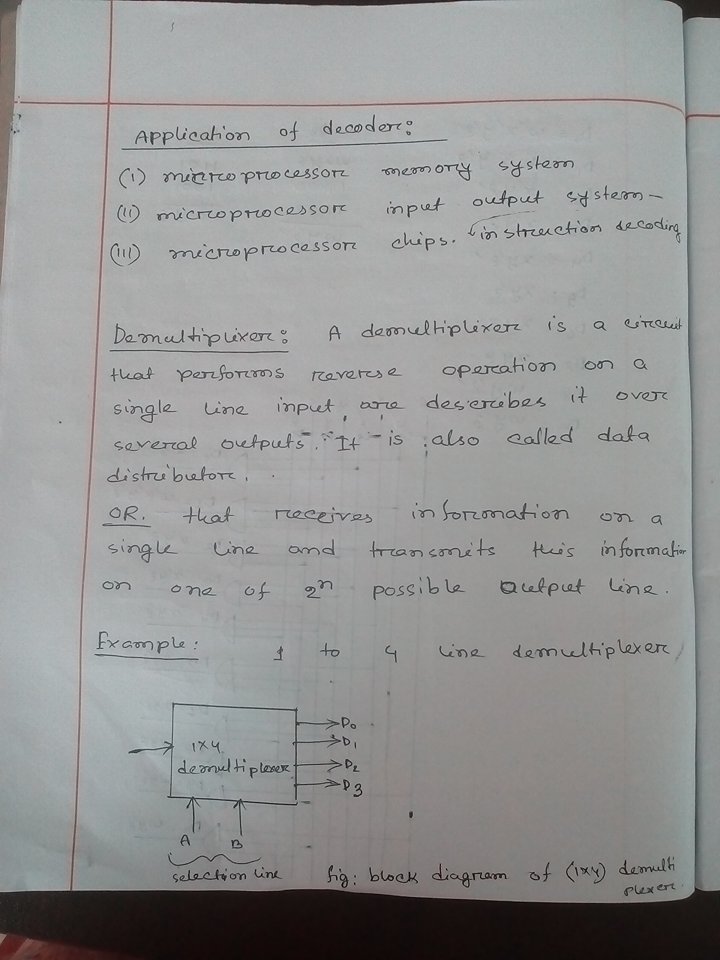 Application of decoder:
(i) microprocessor memory system
(ii) microprocessor input output system-
(iii) microprocessor chips. instruction decoding
Demultiplixer: A demultiplixer is a circuit
that performs reverse operation on a
single line input, are describes it over
several outputs. It is also called data
distributor.
OR. that receives information on a
single line and transmits this information
on one of 2ⁿ possible output line.
Example: 1 to 4 line demultiplexer
D0
1x4 D1
demultiplexer D2
D3
A B
selection line fig: block diagram of (1x4) demulti
plexer.